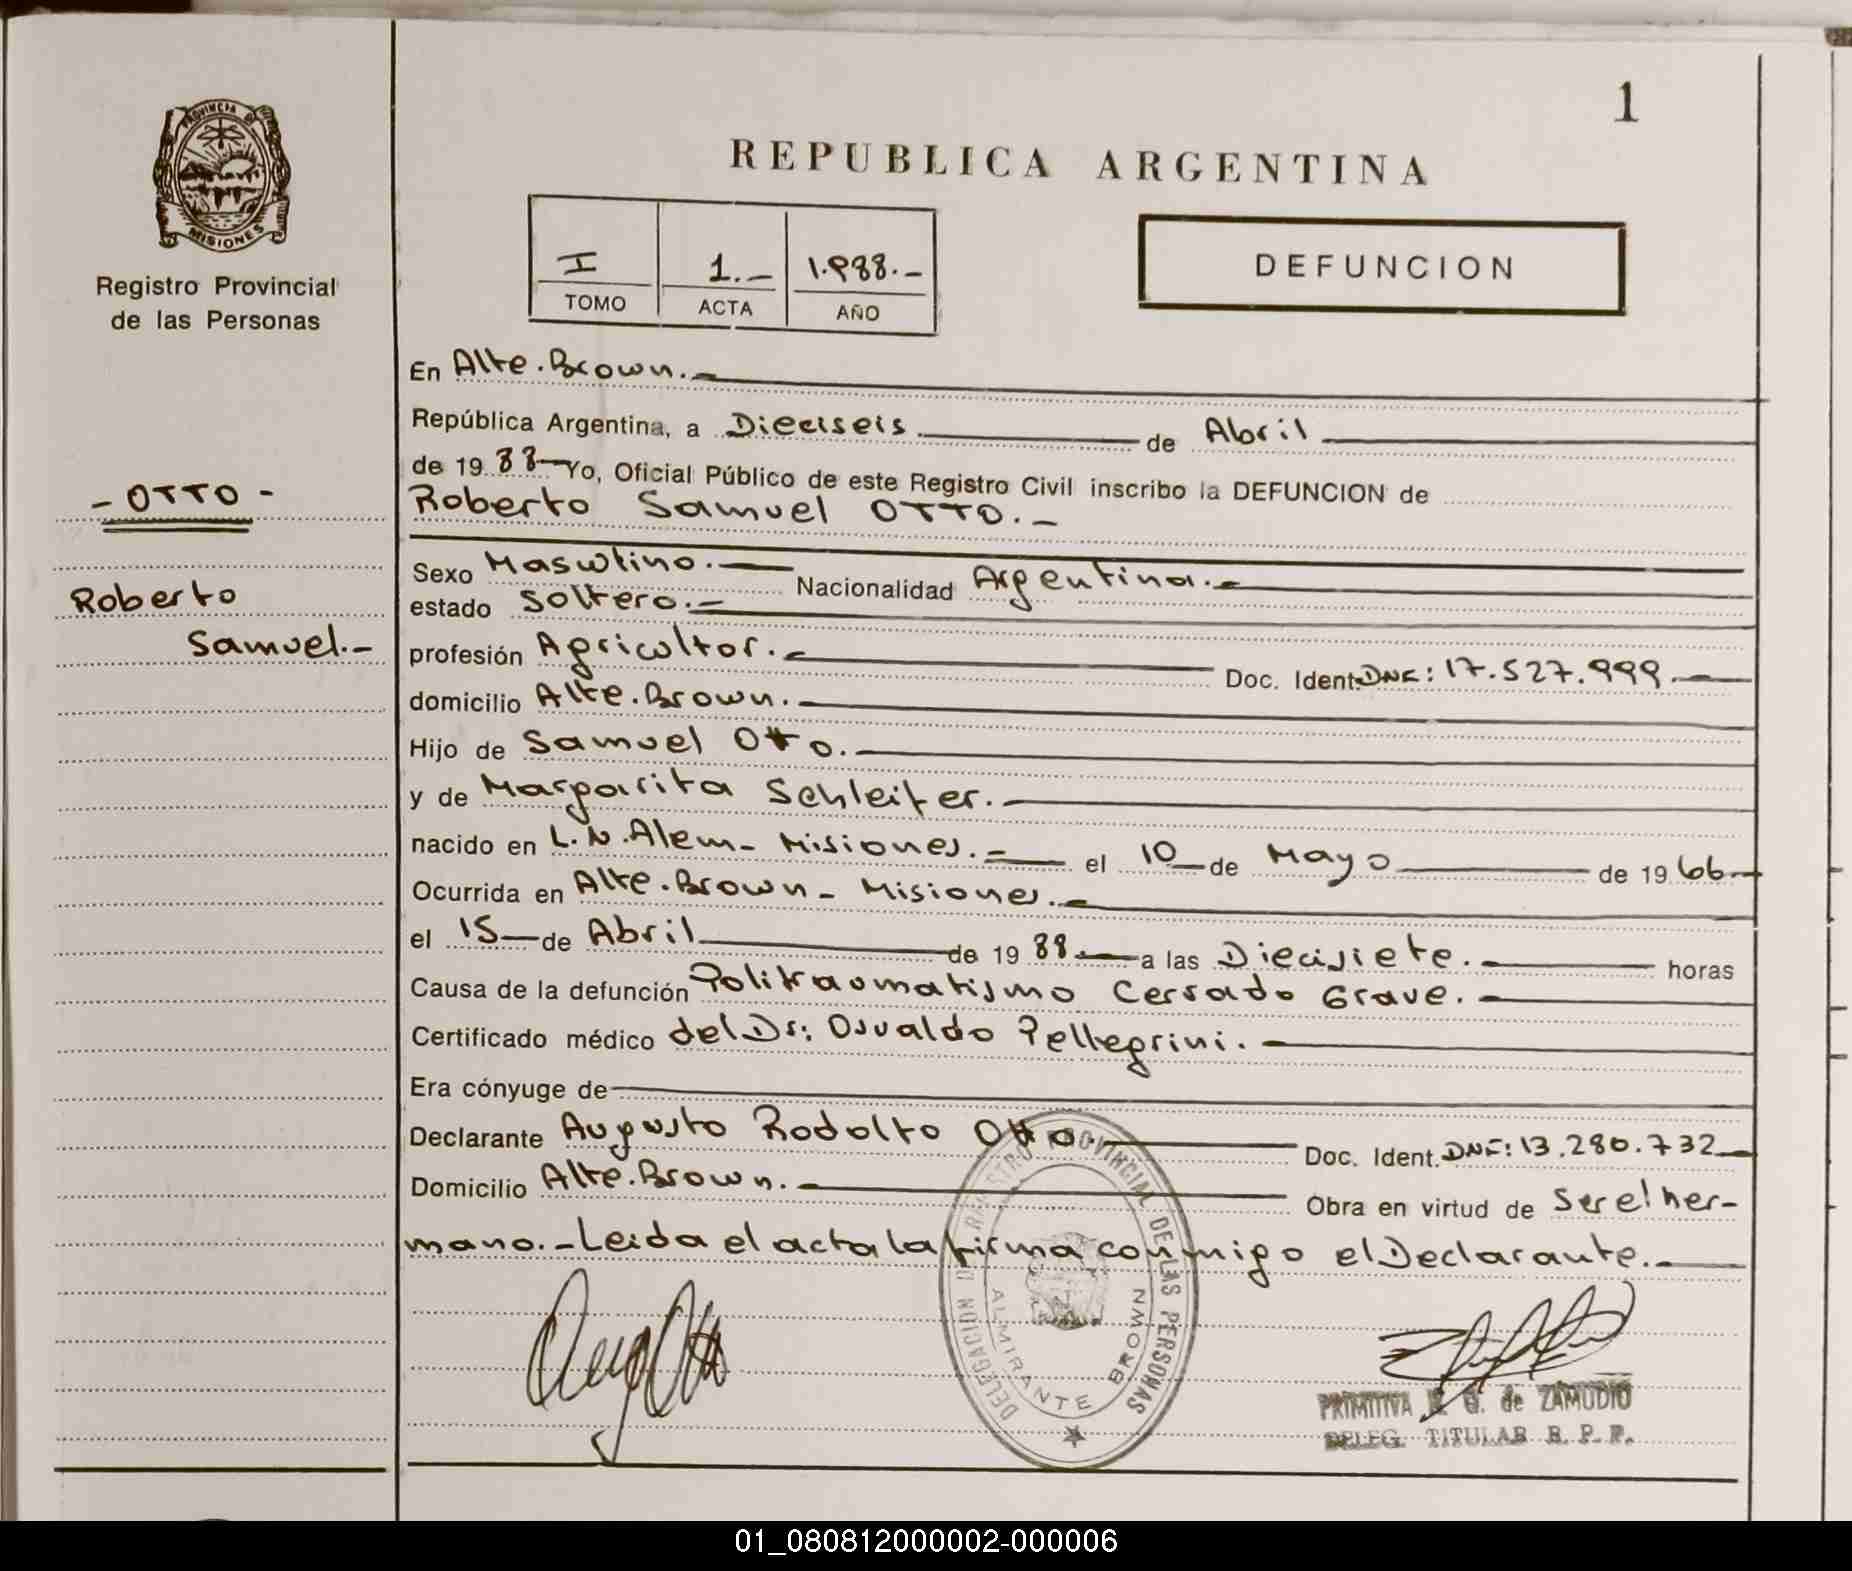 1
PROVINCIA DE
MISIONES
Registro Provincial
de las Personas
REPUBLICA ARGENTINA
I
TOMO
1.-
ACTA
1.988.-
AÑO
DEFUNCION
- OTTO -
Roberto
Samuel.-
En Alte. Brown.-
República Argentina, a Dieciseis de Abril
de 19 88 Yo, Oficial Público de este Registro Civil inscribo la DEFUNCION de
Roberto Samuel OTTO.-
Sexo Masculino.- Nacionalidad Argentina.-
estado Soltero.-
profesión Agricultor.- Doc. Ident. DNI: 17.527.999.-
domicilio Alte. Brown.-
Hijo de Samuel Otto.-
y de Margarita Schleifer.-
nacido en L.N. Alem - Misiones.- el 10 de Mayo de 19 66
Ocurrida en Alte. Brown - Misiones.-
el 15 de Abril de 19 88 a las Diecisiete.- horas
Causa de la defunción Politraumatismo Cerrado Grave.-
Certificado médico del Dr: Osvaldo Pellegrini.-
Era cónyuge de
Declarante Augusto Rodolfo Otto.- Doc. Ident. DNI: 13.280.732
Domicilio Alte. Brown.- Obra en virtud de Ser el her-
mano.- Leida el acta la firma conmigo el Declarante.-
DELEGACION REGISTRO PROVINCIAL DE LAS PERSONAS
ALMIRANTE BROWN
PRIMITIVA G. de ZAMUDIO
DELEG. TITULAR R. P. P.
01_080812000002-000006